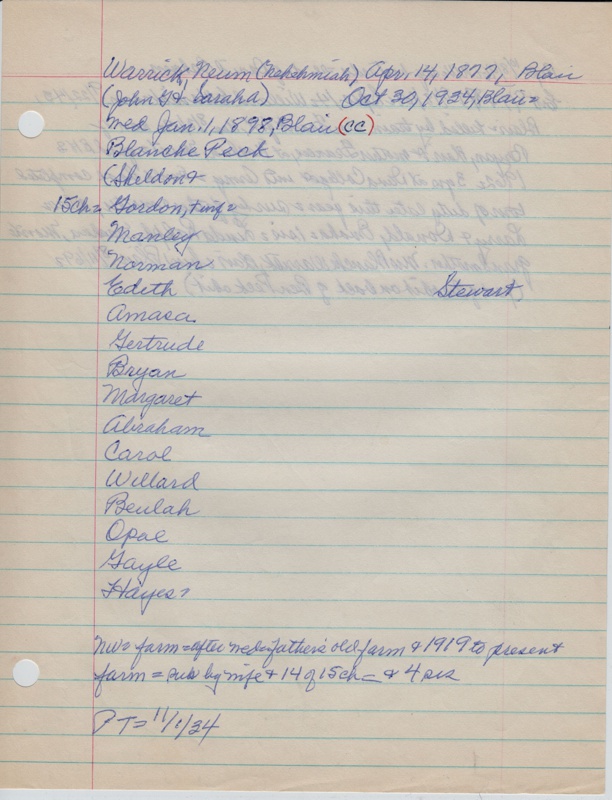 Warrick, Neum (Nehehmiah) Apr. 14, 1877, Blair
(John G & Saraha) Oct 30, 1934, Blair=
wed Jan. 1, 1898, Blair (cc)
Blanche Peck
(Sheldon &
15ch= Gordon, + inf=
Manley
Norman
Edith Stewart
Amasa
Gertrude
Bryan
Margaret
Abraham
Carol
Willard
Beulah
Opal
Gayle
Hayes=
nw= farm= after wed= father's old farm & 1919 to present
farm= sur by wife & 14 of 15 ch= & 4 sis
PT= 11/1/34